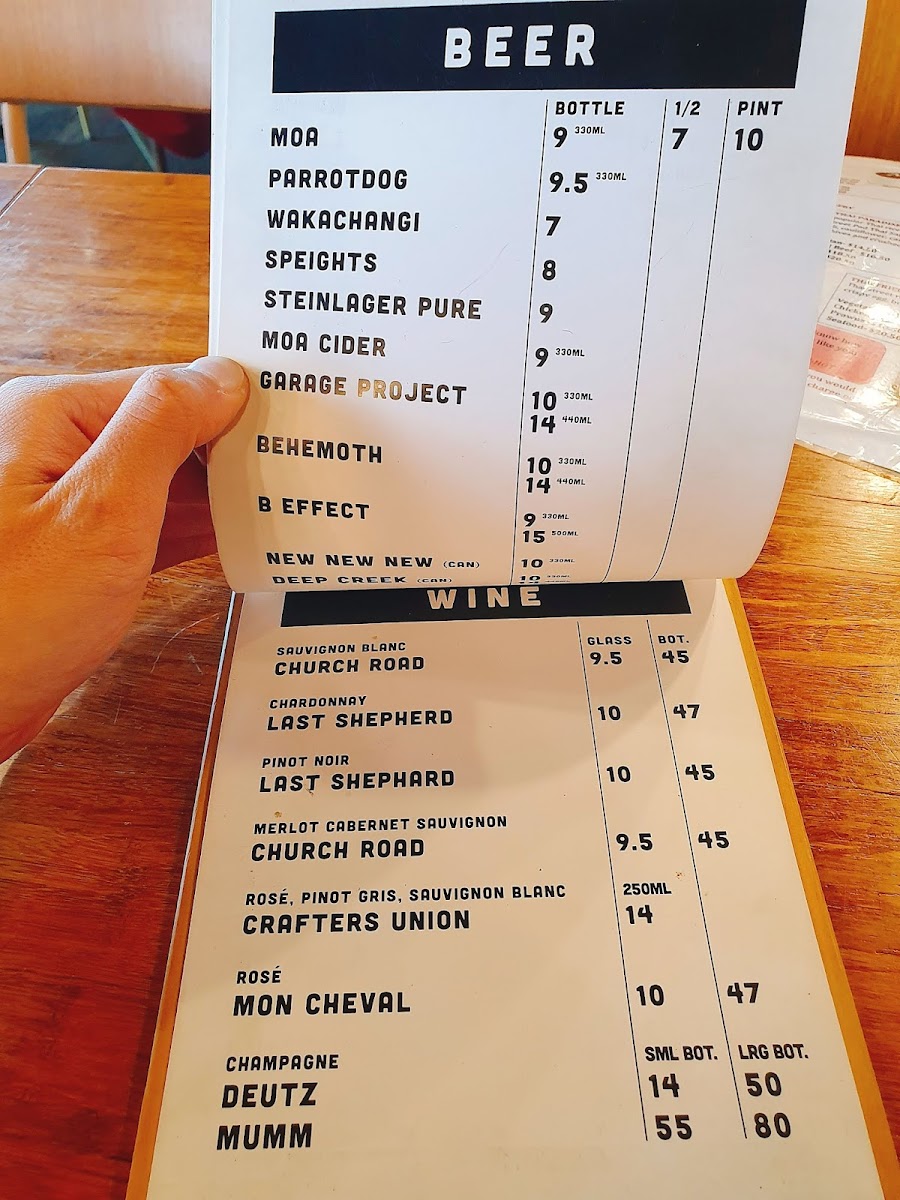 BEER
BOTTLE 1/2 PINT
MOA 9 330ML 7 10
PARROTDOG 9.5 330ML
WAKACHANGI 7
SPEIGHTS 8
STEINLAGER PURE 9
MOA CIDER 9 330ML
GARAGE PROJECT 10 330ML
14 440ML
BEHEMOTH 10 330ML
14 440ML
B EFFECT 9 330ML
15 500ML
NEW NEW NEW (CAN) 10 330ML
DEEP CREEK (CAN) 10 330ML
WINE
GLASS BOT.
SAUVIGNON BLANC
CHURCH ROAD 9.5 45
CHARDONNAY
LAST SHEPHERD 10 47
PINOT NOIR
LAST SHEPHARD 10 45
MERLOT CABERNET SAUVIGNON
CHURCH ROAD 9.5 45
ROSÉ, PINOT GRIS, SAUVIGNON BLANC 250ML
CRAFTERS UNION 14
ROSÉ
MON CHEVAL 10 47
CHAMPAGNE SML BOT. LRG BOT.
DEUTZ 14 50
MUMM 55 80